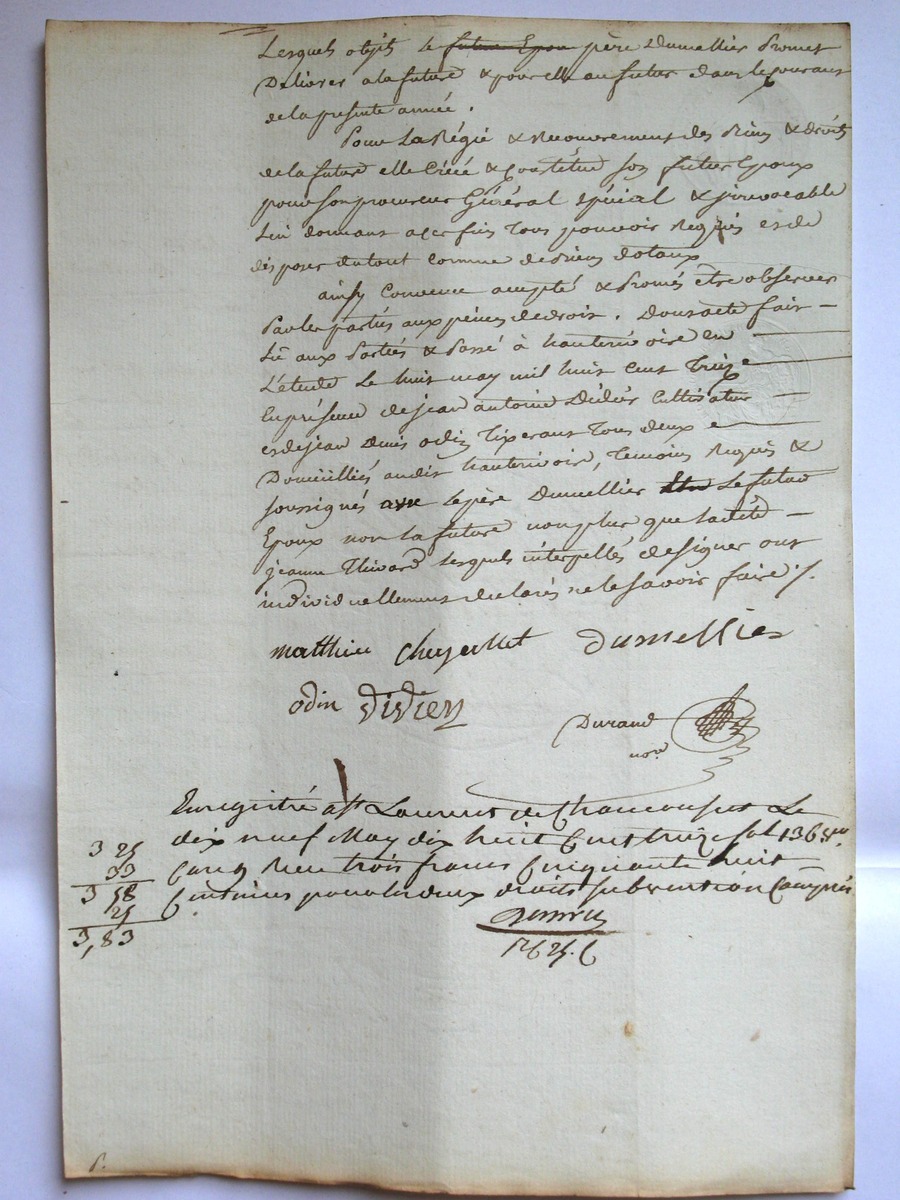 Lesquels objets le futur Epou père Dumellier Promet
Delivrer a la future & pour elle au futur dans le courant
de la presente année.
Pour La Régie & Recouvrement des Biens & droits
de la future elle Créé & Constitue son futur Epoux
pour son procureur Général spécial & irrevocable
lui donnant a ces fins tous pouvoir Requis et de
disposer du tout comme de biens dotaux
ainsy Convenu accepté & Promis être observer
Par les partiés aux peines de droit. Dont acte fait
Lû aux Partiés & Passé à hauterivoire en
L'étude Le huit may mil huit cent Treize
En présence de jean antoine Didier Cultivateur
et de jean Denis odin Tixerant tous deux
Domiciliés audit hauterivoire, Temoins Requis &
soussignés avec le père Dumellier Le futur
Epoux non la future non plus que ladite
jeanne Thivard lesquels interpellés de signer ont
individuellement declarés ne le savoir faire ./.
matthieu Dumellier
odin Didier
Durand
nore
Enregistré a st Laurent de Chamousset Le
dix neuf May dix huit Cent treize fol 136
3 25
Reçu trois francs Cinquante huit
33
3 58
Centimes pour les deux droits subvention Comprise
25
3,83